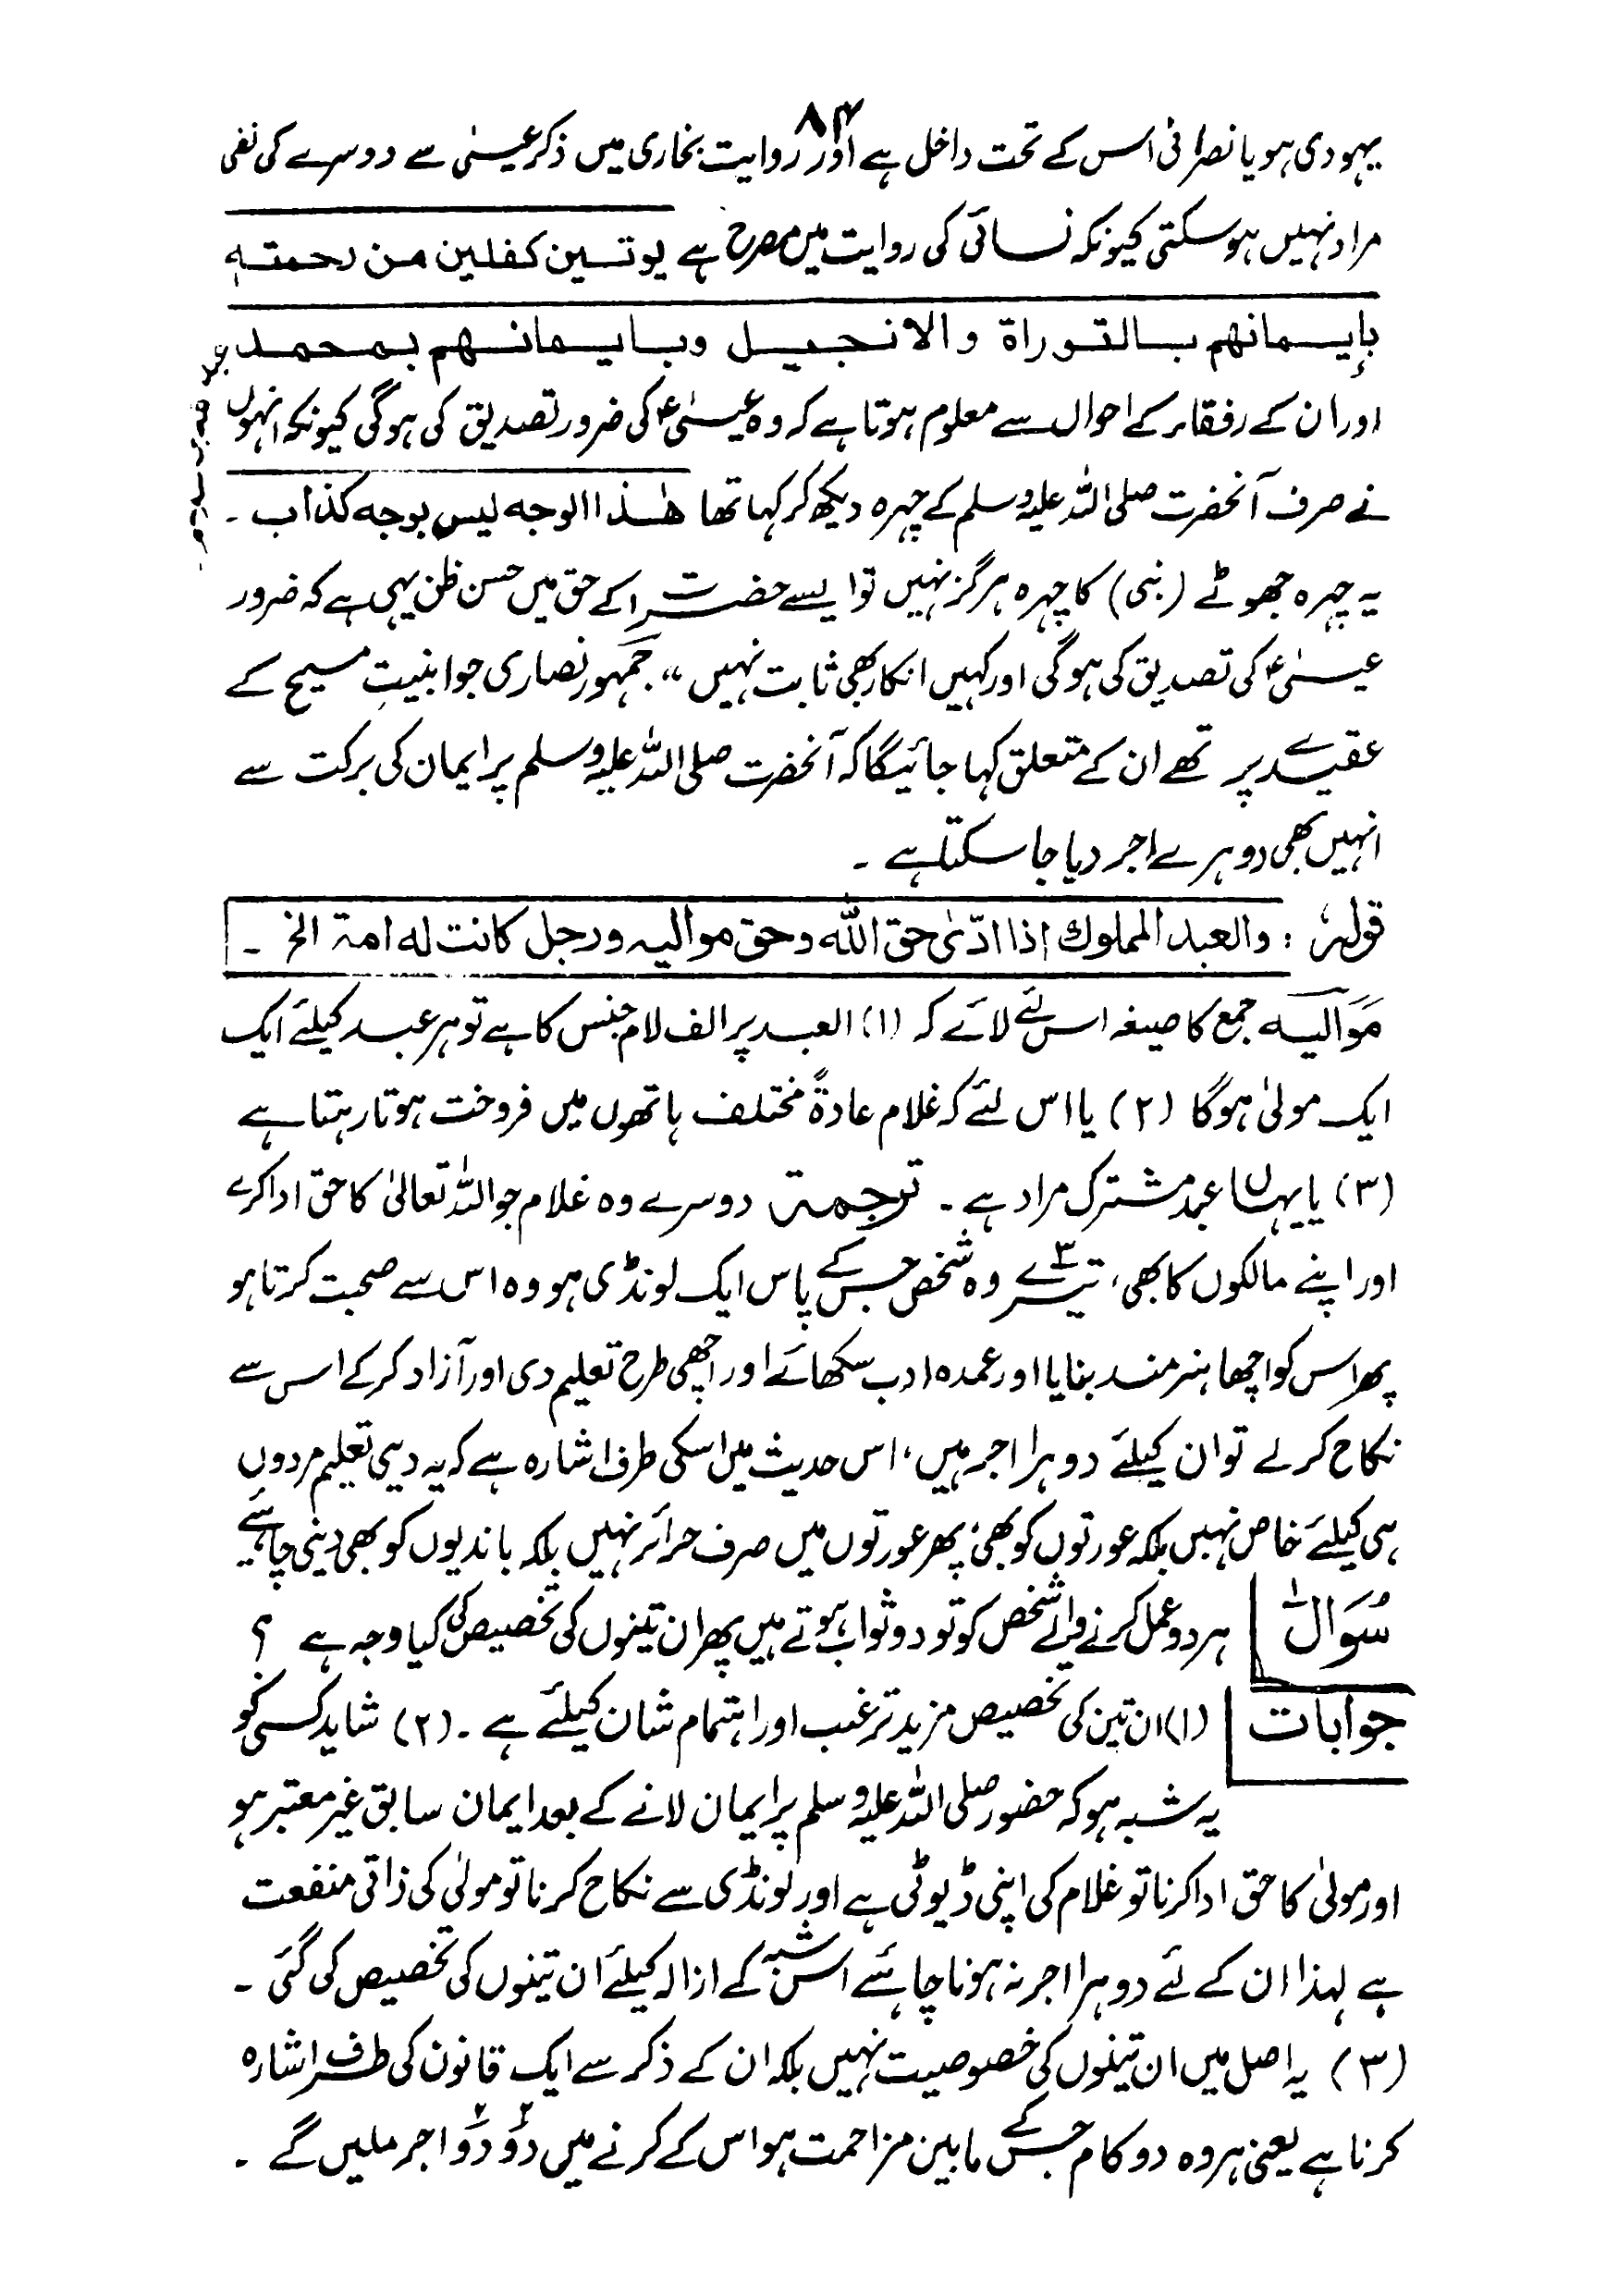 ۸۴
یہودی ہو یا نصرانی اس کے تحت داخل ہے اور روایت بخاری میں ذکر عیسٰی سے دوسرے کی نفی
مراد نہیں ہوسکتی کیونکہ نسائی کی روایت میں مصرح ہے یوتسین کفلین من رحمته
بإیمانهم بالتوراة والانجیل وبایمانهم بمحمد
اور ان کے رفقاء کے احوال سے معلوم ہوتا ہے کہ وہ عیسٰیؑ کی ضرور تصدیق کی ہوگی کیونکہ انہوں
نے صرف آنحضرت صلی اللہ علیہ وسلم کے چہرہ دیکھ کر کہا تھا هٰذا الوجه لیس بوجه کذاب ۔
یہ چہرہ جھوٹے (نبی) کا چہرہ ہرگز نہیں تو ایسے حضرات کے حق میں حسن ظن یہی ہے کہ ضرور
عیسٰیؑ کی تصدیق کی ہوگی اور کہیں انکار بھی ثابت نہیں ،، جمہور نصاری جو ابنیتِ مسیح کے
عقیدے پر تھے ان کے متعلق کہا جائیگا کہ آنحضرت صلی اللہ علیہ وسلم پر ایمان کی برکت سے
انہیں بھی دوہرے اجر دیا جا سکتا ہے ۔
قولہٗ : والعبد المملوك اذا ادّیٰ حق اللّٰه وحق موالیه ورجل کانت له امة الخ ۔
مَوَالیه جمع کا صیغہ اس لئے لائے کہ (۱) العبد پر الف لام جنس کا ہے تو ہر عبد کیلئے ایک
ایک مولیٰ ہوگا (۲) یا اس لئے کہ غلام عادۃً مختلف ہاتھوں میں فروخت ہوتا رہتا ہے
(۳) یا یہاں عبد مشترک مراد ہے ۔ ترجمة دوسرے وہ غلام جو اللہ تعالیٰ کا حق ادا کرے
اور اپنے مالکوں کا بھی، تیسرے ۳ وہ شخص جس کے پاس ایک لونڈی ہو وہ اس سے صحبت کرتا ہو
پھر اس کو اچھا ہنرمند بنایا اور عمدہ ادب سکھائے اور اچھی طرح تعلیم دی اور آزاد کرکے اس سے
نکاح کرلے تو ان کیلئے دوہرا اجر ہیں، اس حدیث میں اسکی طرف اشارہ ہے کہ یہ دینی تعلیم مردوں
ہی کیلئے خاص نہیں بلکہ عورتوں کو بھی، پھر عورتوں میں صرف حرائر نہیں بلکہ باندیوں کو بھی دینی چاہئے
سُوَالٌ ہر دو عمل کرنے والے شخص کو تو دو ثواب ہوتے ہیں پھر ان تینوں کی تخصیص کی کیا وجہ ہے ؟
جوابات (۱) ان تین کی تخصیص مزید ترغیب اور اہتمام شان کیلئے ہے ۔ (۲) شاید کسی کو
یہ شبہ ہو کہ حضور صلی اللہ علیہ وسلم پر ایمان لانے کے بعد ایمان سابق غیر معتبر ہو
اور مولیٰ کا حق ادا کرنا تو غلام کی اپنی ڈیوٹی ہے اور لونڈی سے نکاح کرنا تو مولیٰ کی ذاتی منفعت
ہے لہذا ان کے لئے دوہرا اجر نہ ہونا چاہئے اس شبہ کے ازالہ کیلئے ان تینوں کی تخصیص کی گئی ۔
(۳) یہ اصل میں ان تینوں کی خصوصیت نہیں بلکہ ان کے ذکر سے ایک قانون کی طرف اشارہ
کرنا ہے یعنی ہر وہ دو کام جس کے مابین مزاحمت ہو اس کے کرنے میں دو دو اجر ملیں گے ۔